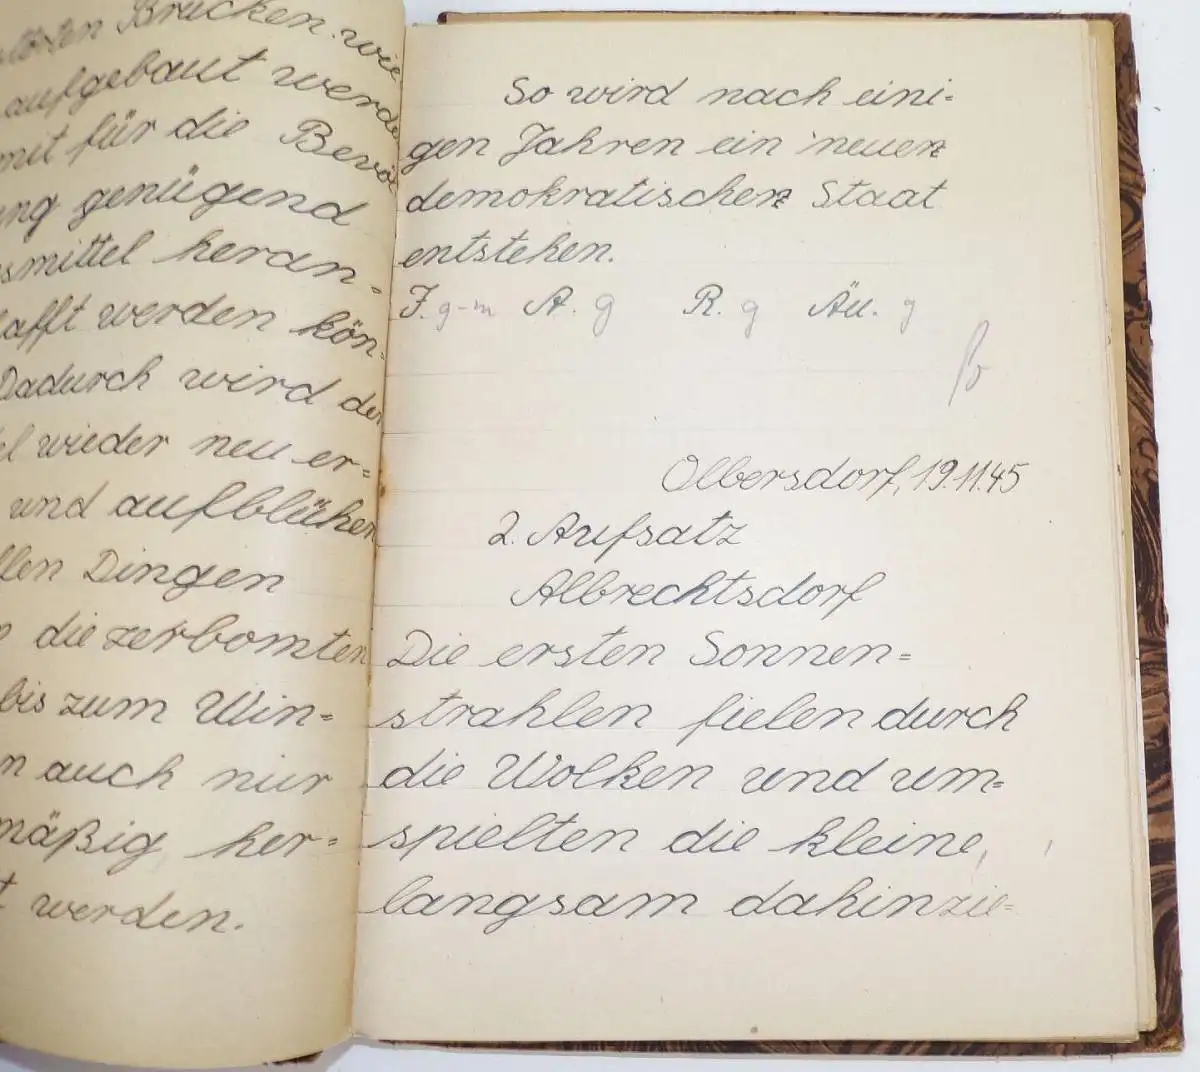 Brücken wie
aufgebaut werde
mit für die Bevöl
ung genügend
smittel heran-
afft werden kön-
Dadurch wird der
el wieder neu er=
und aufblühen
llen Dingen
die zerbomten
bis zum Win=
n auch nur
mäßig her=
t werden.
So wird nach eini-
gen Jahren ein neuer
demokratischer Staat
entstehen.
J. g-m A. g R. g Äu. g
Olbersdorf, 19.11.45
2. Aufsatz
Albrechtsdorf
Die ersten Sonnen=
strahlen fielen durch
die Wolken und um=
spielten die kleine,
langsam dahinzie=